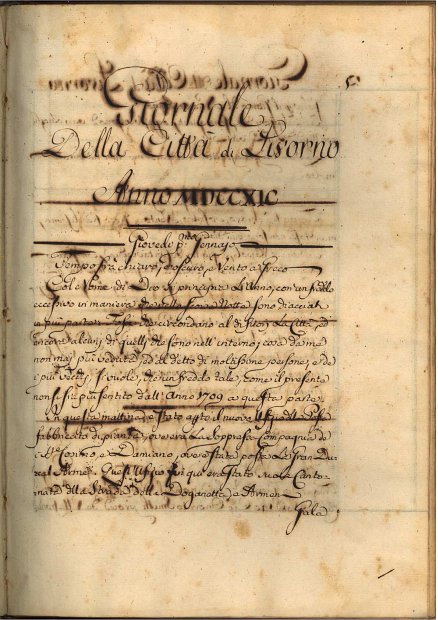 Giornale
Della Città di Livorno
Anno MDCCXIC
Giovedo p.mo Gennajo
Tempo frà chiaro, e oscuro, e Vento a Greco
Col Nome di Dio si principia L'Anno, con un freddo
eccessivo in maniera che nella scorsa Notte sono diacciati
la più parte Fossi che circondano al di fuori La Città, ed
ancora alcuni di quelli che sono nell'interno, cosa da me
non mai più veduta, ed al detto di moltissime persone, e de
i più Vecchi, si vuole, che un freddo tale, come il presente
non si sia più sentito dall'Anno 1709 a questa parte.
In questa mattina è stato aperto il nuovo Ufizio della Posta
fabbricato di pianta, ove era La Soppressa Compagnia de
S.ti Cosimo, e Damiano, ove è stata posta La Gran Du-
cal Arme. Quest'Ufizio fin qui era stato sul Canto-
nata della Strada della Doganetta, e Armeni
Gala